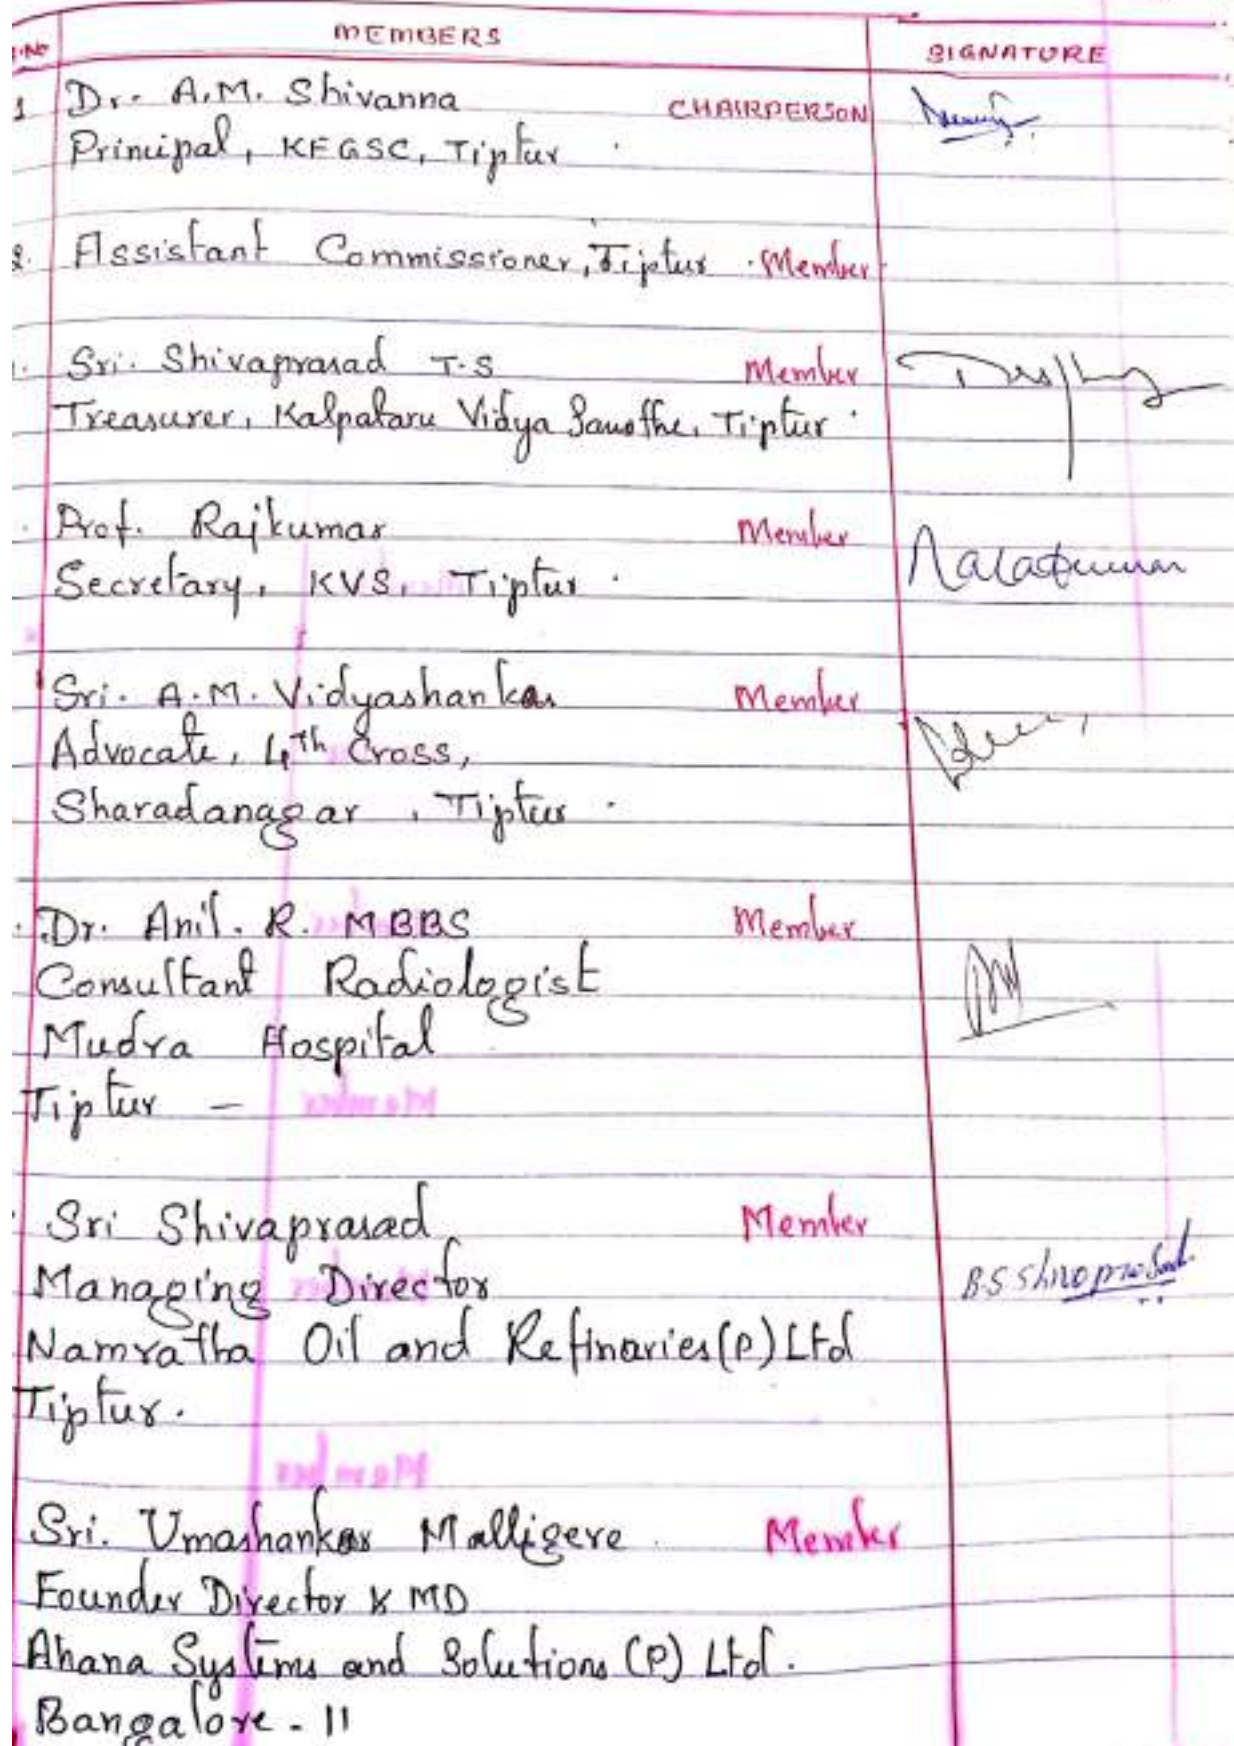 MEMBERS SIGNATURE
1 Dr. A.M. Shivanna CHAIRPERSON
Principal, KFGSC, Tiptur .
2. Assistant Commissioner, Tiptur . Member
Sri. Shivaprasad T.S Member
Treasurer, Kalpataru Vidya Samsthe, Tiptur .
Prof. Rajkumar Member
Secretary, KVS, Tiptur .
Sri. A.M. Vidyashankar Member
Advocate, 4th Cross,
Sharadanagar , Tiptur .
Dr. Anil. R. MBBS Member
Consultant Radiologist
Mudra Hospital
Tiptur -
Sri Shivaprasad Member
Managing Director B.S Shivaprasad
Namratha Oil and Refinaries (P) Ltd
Tiptur.
Sri. Umashankar Malligere Member
Founder Director & MD
Ahana Systems and Solutions (P) Ltd.
Bangalore - 11